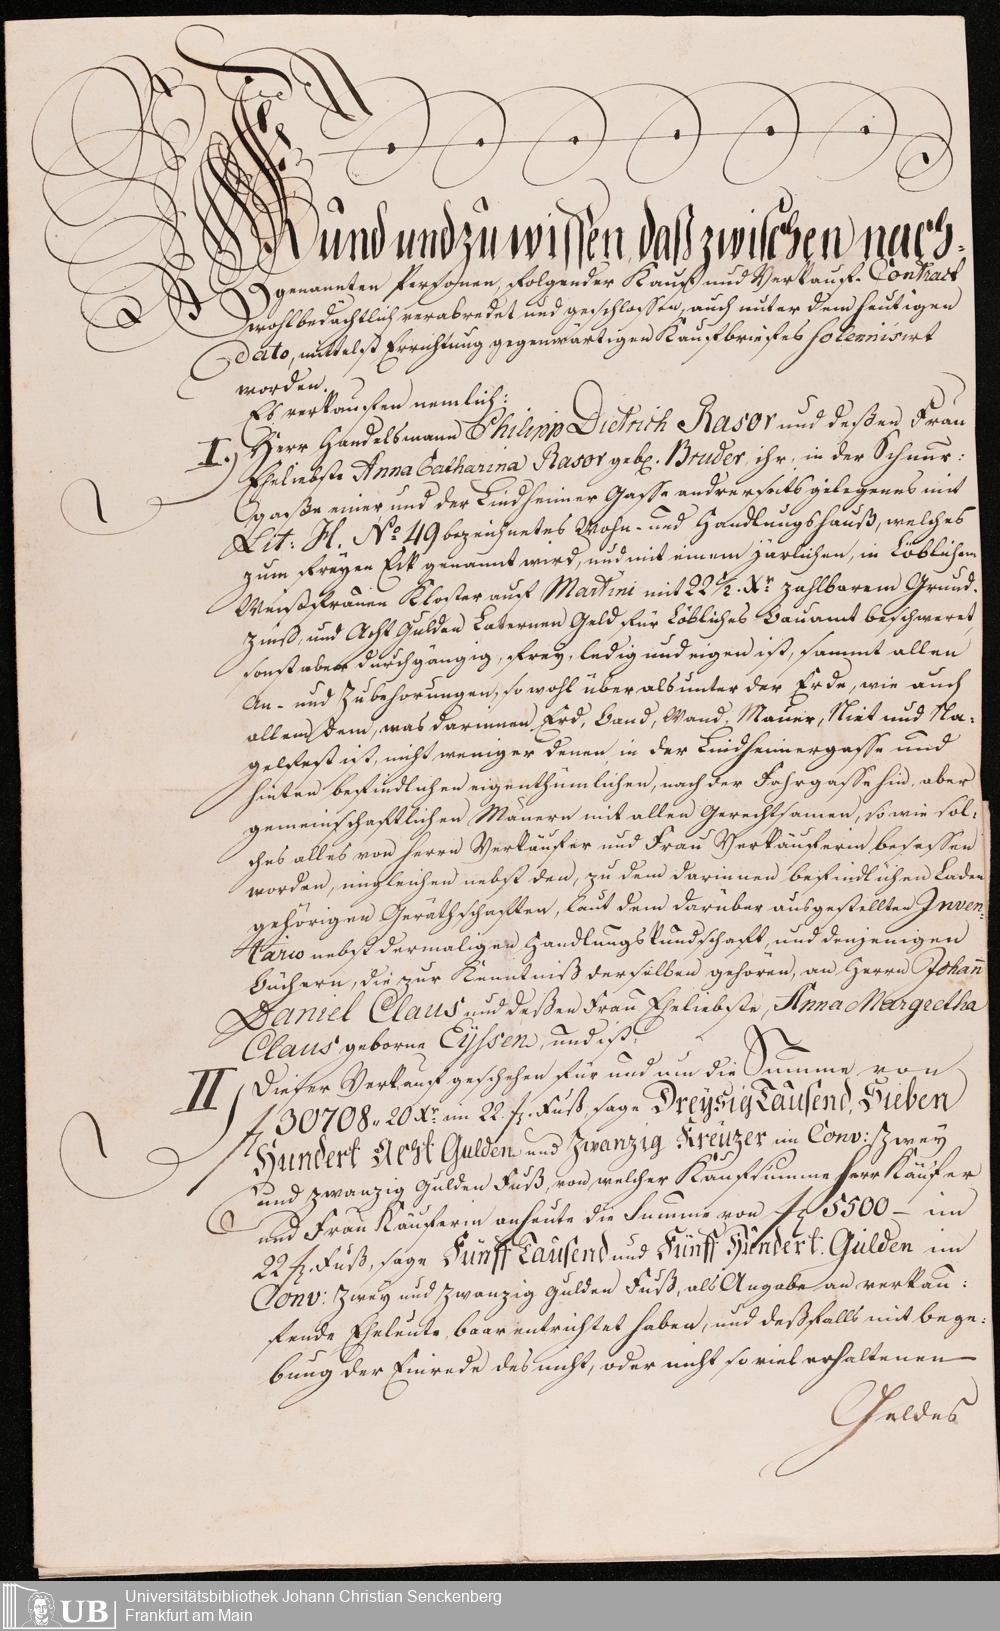 Kund und zu wissen, daß zwischen nach-
genannten Personen, folgender Kauf- und Verkauf-Contract
wohlbedächtlich verabredet und geschlossen, auch unter dem heutigen
dato, mittelst Errichtung gegenwärtigen Kaufbriefes solennisirt
worden.
Es verkauffen nemlich:
I.) Herr Handelsmann Philipp Dietrich Rasor und deßen Frau
Eheliebste Anna Catharina Rasor geb. Bruder, ihr, in der Schnur:
gaße einer und der Lindheimer Gasse andrerseits gelegenes mit
Lit: H. No 49 bezeichnetes Wohn- und Handlungshauß, welches
zum Freyen Eck genannt wird, und mit einem järlichen, in Löblichem
Weißfrauen Kloster auf Martini mit 22 1/2. Xr zahlbarem Grund-
zinß, und Acht Gulden Laternen Geld für Löbliches Bauamt beschweret,
sonst aber durchgängig, frey, ledig und eigen ist, sammt allen
An- und Zubehorungen, so wohl über als unter der Erde, wie auch
allem dem, was darinnen Erd, Band, Wand, Mauer, Niet und Na:
gelfest ist, nicht weniger denen in der Lindheimergasse und
hinten befindlichen eigenthümlichen, nach der Fahrgasse hin, aber
gemeinschaftlichen Mauern mit allen Gerechtsamen, so wie sol:
ches alles von Herrn Verkäufer und Frau Verkäuferin besessen
worden, imgleichen nebst den, zu dem darinnen befindlichen Laden
gehörigen Geräthschafften, laut dem darüber ausgestellten Inven:
tario nebst dermaligen Handlungskundschaft, und denjenigen
Büchern, die zur Kenntniß derselben gehören, an Herrn Johann
Daniel Claus und deßen Frau Eheliebste, Anna Margretha
Claus geborne Eyssen, und ist.
II Dieser Verkauf geschehen für und um die Summe von
f 30708 „ 20 Xr im 22. f. Fuß, sage Dreysig Tausend, Sieben
Hundert Acht Gulden und Zwanzig Kreuzer im Conv: Zwey
und zwanzig Gulden Fuß, von welcher Kaufsumme Herr Käufer
und Frau Käuferin anheute die Summe von f 5500 – im
22 f. Fuß, sage Fünff Tausend und Fünff Hundert Gulden im
Conv: Zwey und Zwanzig Gulden Fuß, als Angabe an verkau:
fende Eheleute, baar entrichtet haben, und deßfalls mit bege:
bung der Einrede des nicht, oder nicht so viel erhaltenen
Geldes
UB Universitätsbibliothek Johann Christian Senckenberg
Frankfurt am Main